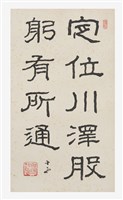 定位川澤股
躬有所通